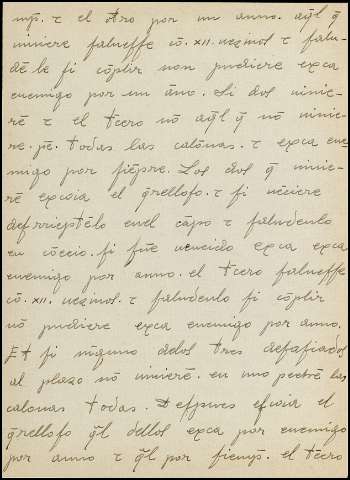 mp̃. τ el otro por un anno. aq̃l q̃
viniere falueffe cõ. xII. uezinos τ falu-
dẽ le fi cõplir non pudiere exca
enemigo por un ãno. Si dos vinie-
rẽ τ el t̃cero nõ aq̃l q̃ nõ vinie-
re. pẽ. todas las calõnas. τ exca ene-
migo por fiẽpre. Los dos q̃ vinie-
rẽ excoia el q̃rellofo. τ fi uẽciere
defrieptẽlo enel cãpo τ faludenlo
en cõceio. fi fue uencido exca exca
enemigo por anno. el t̃cero falueffe
cõ. xII. uezinos. τ faludenlo fi cõplir
nõ pudiere exca enemigo por anno.
Et fi nĩguno delos tres defafiados
al plazo nõ vinierẽ. en uno pectẽ las
calonas todas. Defpues efcoia el
q̃rellofo q̃l dellos exca por enemigo
por anno τ q̃l por fiemp̃. el t̃cero